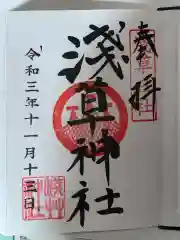 奉拝
淺草神社
令和三年十一月十三日